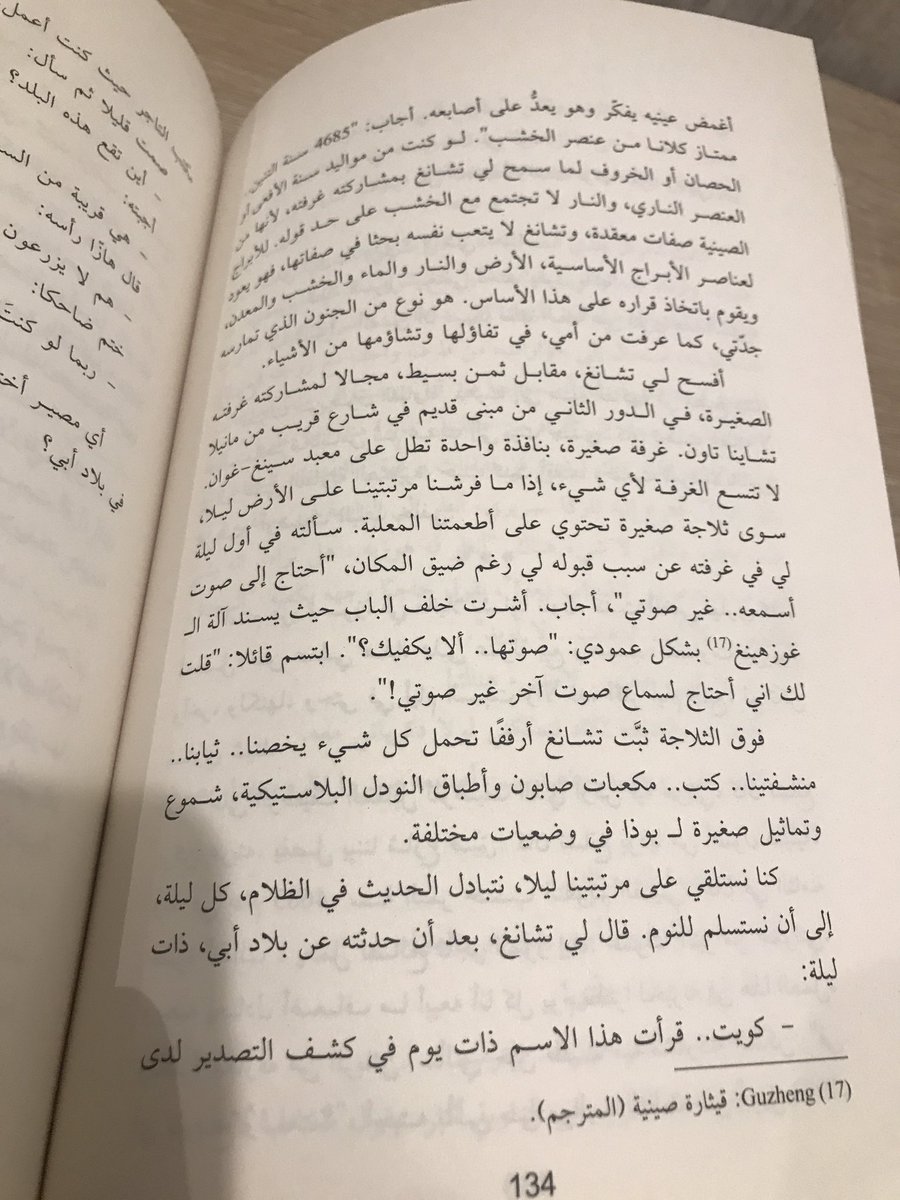 أغمض عينيه يفكّر وهو يعدُّ على أصابعه. أجاب: "4685 سنة التنين.
ممتاز كلانا من عنصر الخشب". لو كنت من مواليد سنة الأفعى أو
الحصان أو الخروف لما سمح لي تشانغ بمشاركته غرفته، لأنها من
العنصر الناري، والنار لا تجتمع مع الخشب على حد قوله. للأبراج
الصينية صفات معقدة، وتشانغ لا يتعب نفسه بحثا في صفاتها، فهو يعود
لعناصر الأبراج الأساسية، الأرض والنار والماء والخشب والمعدن،
ويقوم باتخاذ قراره على هذا الأساس. هو نوع من الجنون الذي تمارسه
جدّتي، كما عرفت من أمي، في تفاؤلها وتشاؤمها من الأشياء.
أفسح لي تشانغ، مقابل ثمن بسيط، مجالا لمشاركته غرفته
الصغيرة، في الدور الثاني من مبنى قديم في شارع قريب من مانيلا
تشاينا تاون. غرفة صغيرة، بنافذة واحدة تطل على معبد سينغ-غوان.
لا تتسع الغرفة لأي شيء، إذا ما فرشنا مرتبتينا على الأرض ليلا،
سوى ثلاجة صغيرة تحتوي على أطعمتنا المعلبة. سألته في أول ليلة
لي في غرفته عن سبب قبوله لي رغم ضيق المكان، "أحتاج إلى صوت
أسمعه.. غير صوتي"، أجاب. أشرت خلف الباب حيث يسند آلة الـ
غوزهينغ(17) بشكل عمودي: "صوتها.. ألا يكفيك؟". ابتسم قائلا: "قلت
لك اني أحتاج لسماع صوت آخر غير صوتي!".
فوق الثلاجة ثبَّت تشانغ أرففًا تحمل كل شيء يخصنا.. ثيابنا..
منشفتينا.. كتب.. مكعبات صابون وأطباق النودل البلاستيكية، شموع
وتماثيل صغيرة لـ بوذا في وضعيات مختلفة.
كنا نستلقي على مرتبتينا ليلا، نتبادل الحديث في الظلام، كل ليلة،
إلى أن نستسلم للنوم. قال لي تشانغ، بعد أن حدثته عن بلاد أبي، ذات
ليلة:
- كويت.. قرأت هذا الاسم ذات يوم في كشف التصدير لدى
(17) Guzheng: قيثارة صينية (المترجم).
134
مكتب التاجر حيث كنت أعمل.
صمت قليلا ثم سأل:
- أين تقع هذه البلد؟
أجبته:
- هي قريبة من
قال هازًا رأسه:
- هم لا يزرعون
ختم ضاحكا:
- ربما لو كنتَ
أي مصير
في بلاد أبي؟